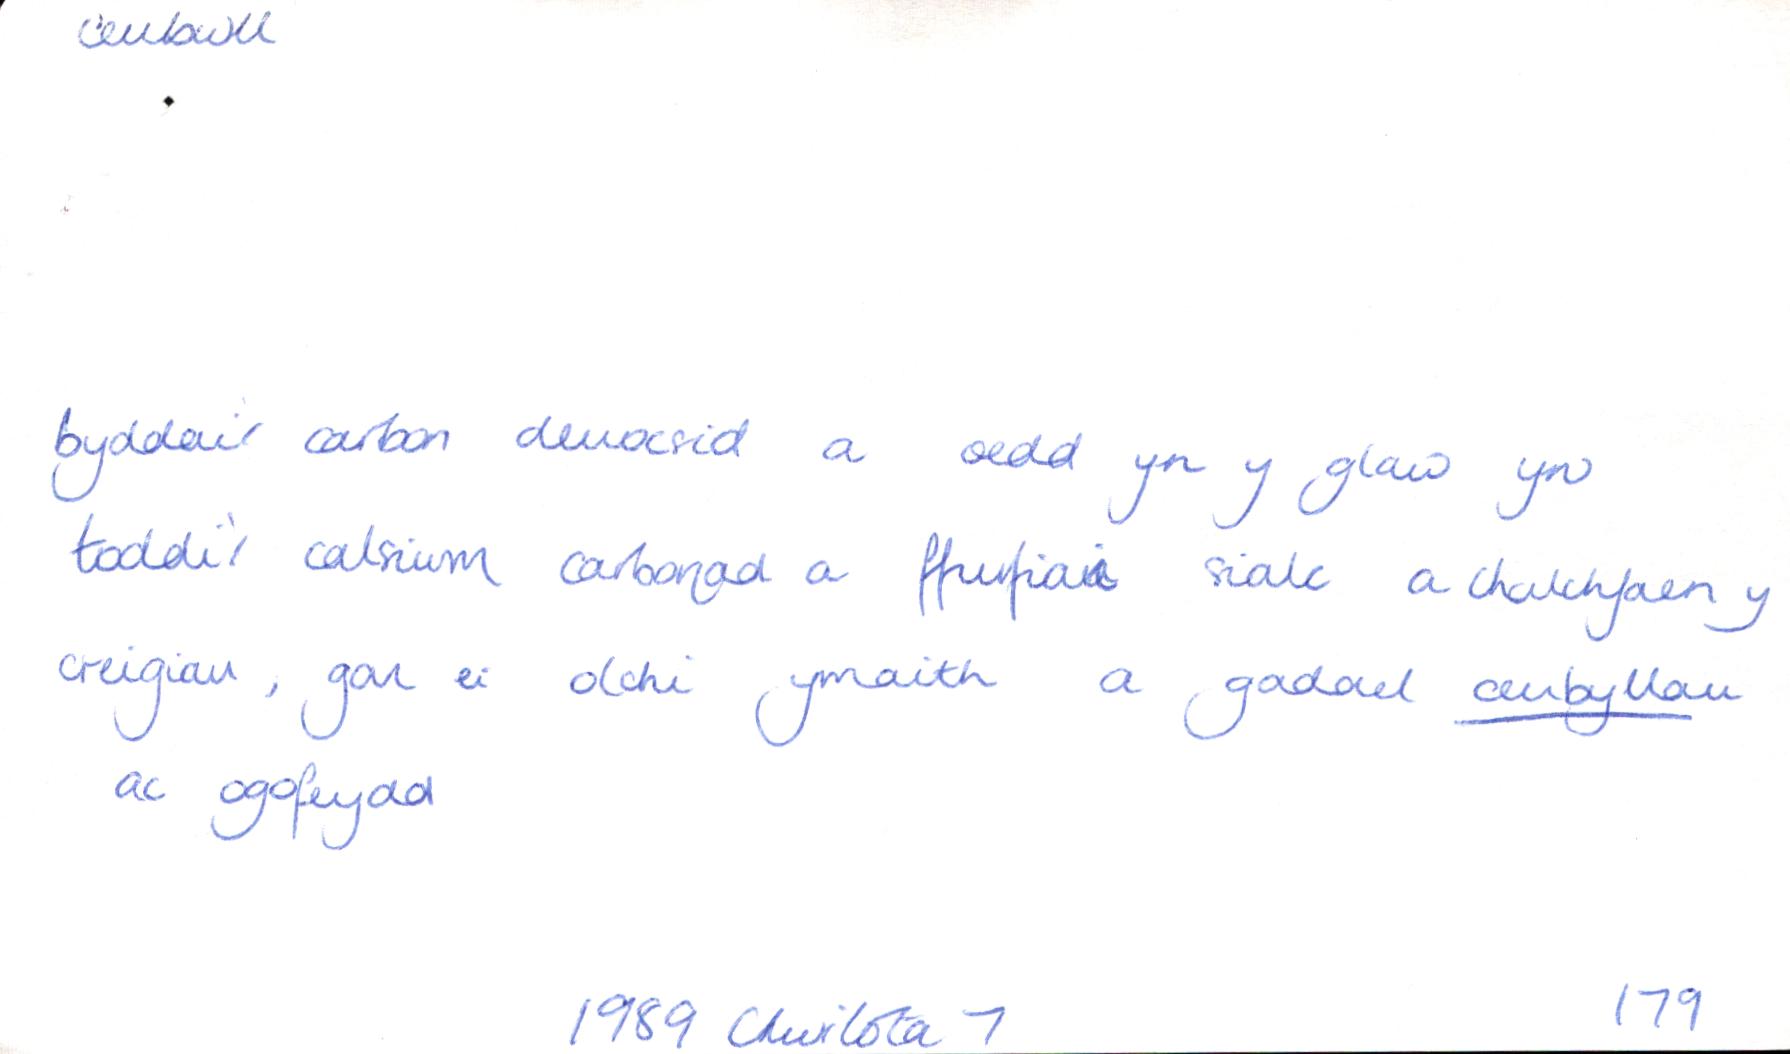 ceubwll
byddai'r carbon deuocsid a oedd yn y glaw yn
toddi'r calsium carbonad a ffurfiai sialc a chalchfaen y
creigiau, gan ei olchi ymaith a gadael ceubyllau
ac ogofeydd
1989 Chwilota 7 179